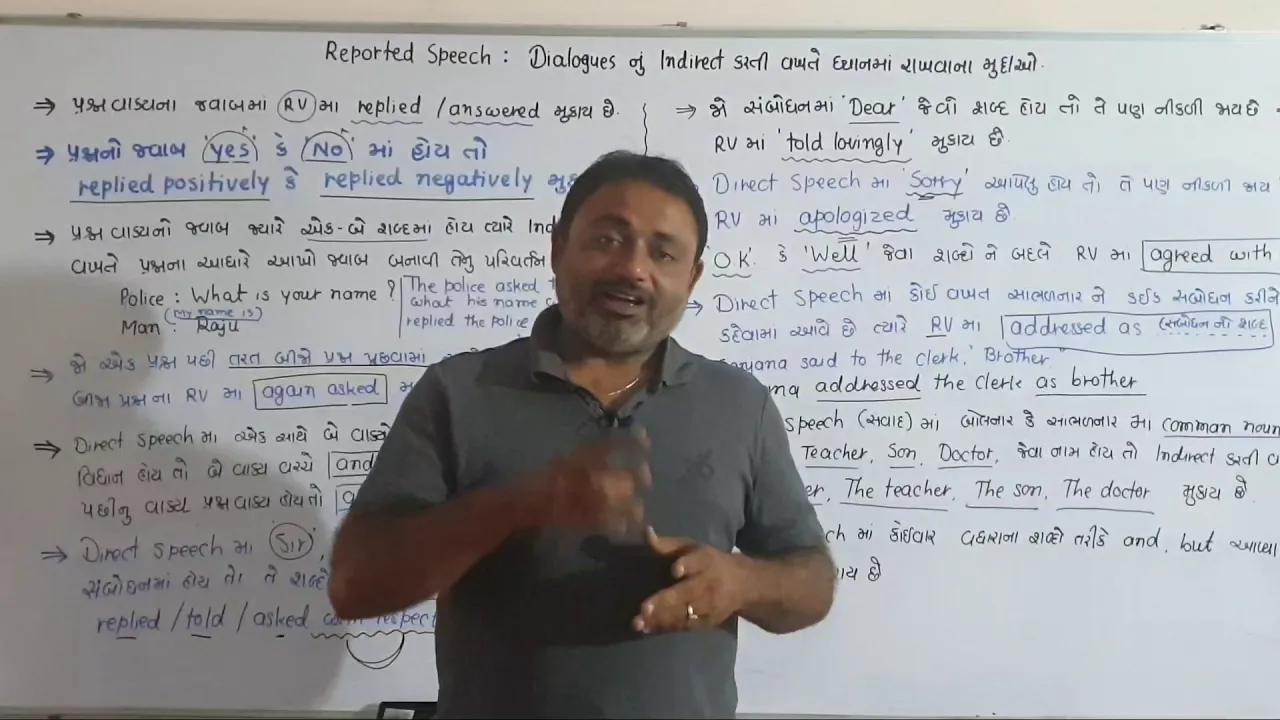 Reported Speech : Dialogues નું Indirect કરતી વખતે ધ્યાનમાં રાખવાના મુદ્દાઓ.
⇒ પ્રશ્નવાક્યના જવાબમાં RV મા replied / answered મુકાય છે.
⇒ પ્રશ્નનો જવાબ 'yes' કે 'No' માં હોય તો
replied positively કે replied negatively
⇒ પ્રશ્નવાક્યનો જવાબ જ્યારે એક-બે શબ્દમાં હોય ત્યારે
વખતે પ્રશ્નના આધારે આખો જવાબ બનાવી તેનુ પરિવર્તન
Police : What is your name ?
(my name is)
Man : Raju
The police asked
what his name
replied the police
⇒ જો એક પ્રશ્ન પછી તરત બીજો પ્રશ્ન પૂછવામાં
બીજા પ્રશ્નના RV મા again asked
⇒ Direct speech મા એક સાથે બે વાક્યો
વિધાન હોય તો બે વાક્ય વચ્ચે and
પછીનુ વાક્ય પ્રશ્નવાક્ય હોય તો
⇒ Direct speech મા 'Sir',
સંબોધનમાં હોય તો તે શબ્દો
replied / told / asked with respect
⇒ જો સંબોધનમાં 'Dear' જેવો શબ્દ હોય તો તે પણ નીકળી જાય છે
RV માં 'told lovingly' મુકાય છે.
Direct Speech મા 'Sorry' આપેલુ હોય તો તે પણ નીકળી જાય
RV માં apologized મુકાય છે
'OK' કે 'Well' જેવા શબ્દો ને બદલે RV મા agreed with
⇒ Direct Speech માં કોઈ વખત સાંભળનાર ને કઈક સંબોધન કરીને
કહેવામાં આવે છે ત્યારે RV મા addressed as (સંબોધન નો શબ્દ
said to the clerk, 'Brother'
addressed the clerk as brother
speech (સંવાદ) માં બોલનાર કે સાંભળનાર મા comman noun
Teacher, Son, Doctor, જેવા નામ હોય તો Indirect કરતી
The teacher, The son, The doctor મુકાય છે.
માં કોઈવાર વધારાના શબ્દો તરીકે and, but આવ્યા
છે